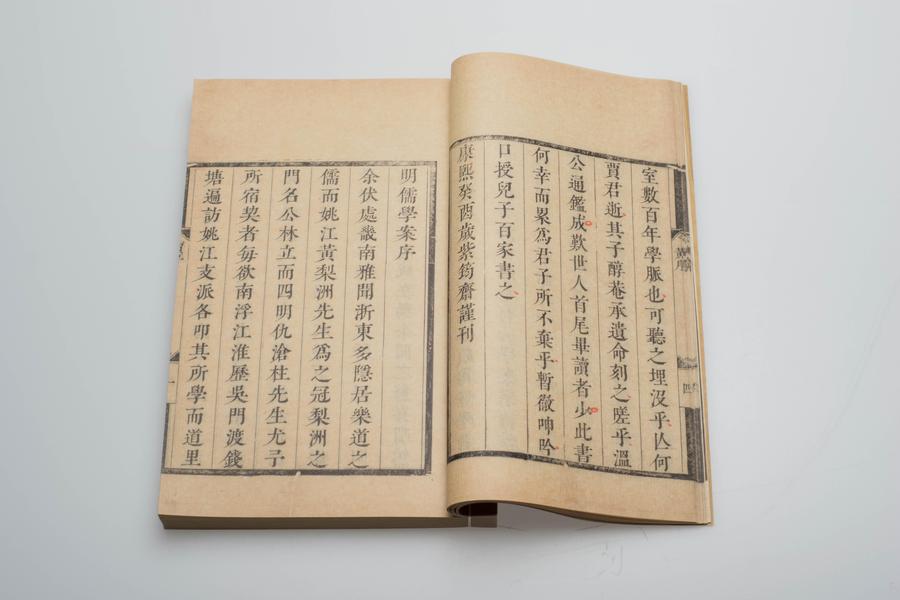 室數百年學脈也可聽之埋沒乎亾何
賈君逝其子醇菴承遺命刻之嗟乎溫
公通鑑成歎世人首尾畢讀者少此書
何幸而累爲君子所不棄乎暫徹呻吟
口授兒子百家書之
康熙癸酉歲紫筠齋謹刊
四
明儒學案序
余伏處畿南雅聞浙東多隱居樂道之
儒而姚江黃梨洲先生爲之冠梨洲之
門名公林立而四明仇滄柱先生尤予
所宿契者每欲南浮江淮歷吳門渡錢
塘遍訪姚江支派各叩其所學而道里
一